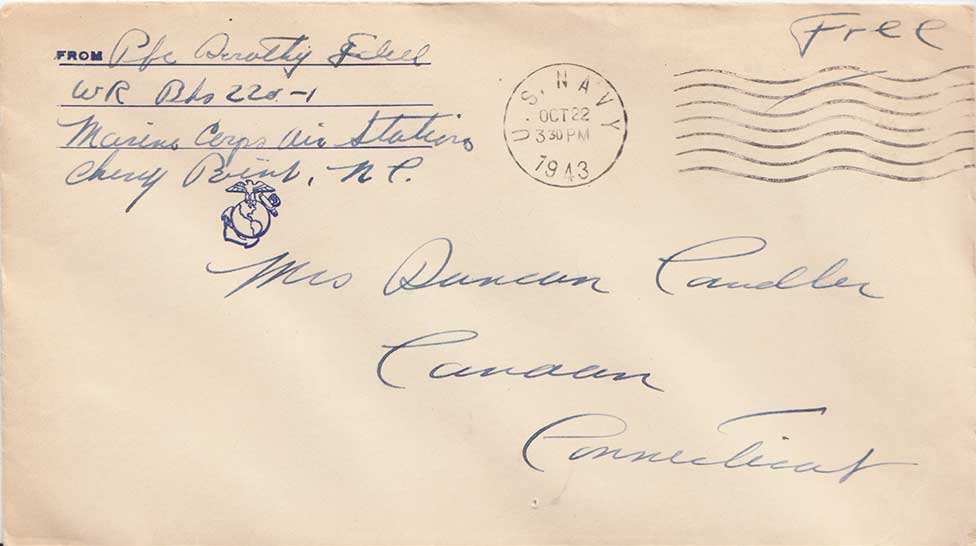 Free
FROM Pfc Dorothy
WR Bks 220-1
Marine Corps Air Station
Cherry Point, N C.
U. S. NAVY
OCT 22
3 30 PM
1943
Mrs Duncan Candler
Canaan
Connecticut